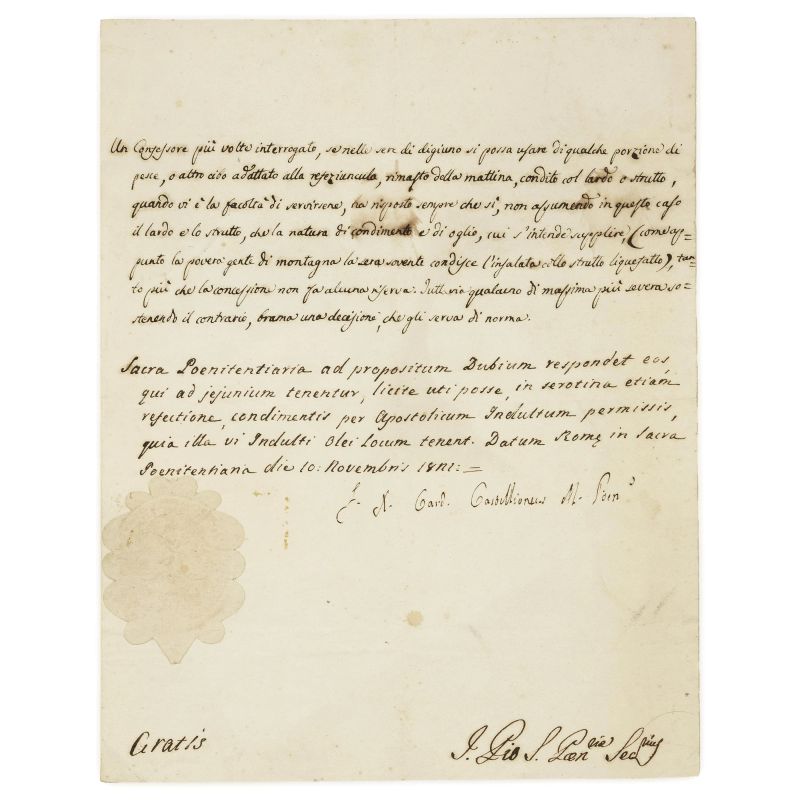 Un Confessore più volte interrogato, se nelle sere di digiuno si possa usare di qualche porzione di
pesce, o altro cibo adattato alla refeziuncula, rimasto della mattina, condito col lardo o strutto,
quando vi è la facoltà di servirsene, ha risposto sempre che sì, non assumendo in questo caso
il lardo e lo strutto, che la natura di condimento e di oglio, cui s'intende supplire, (come ap-
punto la povera gente di montagna la sera sovente condisce l'insalata collo strutto liquefatto), tan-
to più che la concessione non fa alcuna riserva. Tutta via qualcuno di massima più severa so-
stenendo il contrario, brama una decisione, che gli serva di norma.
Sacra Poenitentiaria ad propositum Dubium respondet eos,
qui ad jejunium tenentur, licite uti posse, in serotina etiam
refectione, condimentis per Apostolicum Indultum permissis,
quia illa vi Indulti Olei Locum tenent. Datum Romę in Sacra
Poenitentiaria die 10: Novembris 1821:=
F. X. Card. Castillioneus M. Poen
Gratis
Pio S. Pæn.riæ Sec.rius